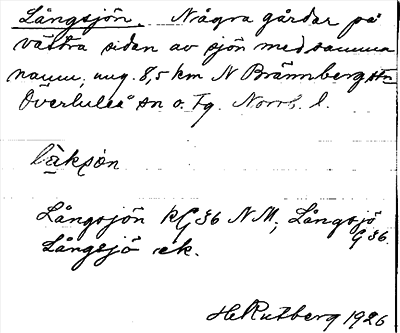 Långsjön. Några gårdar på
västra sidan av sjön med samma
namn, ung. 8,5 km N Brännberg stn
Överluleå sn o. Fg. Norrb. l.
låksjon
Långsjön kG36 NM; Långsjö
G36.
Långsjö ek.
H Rutberg 1926